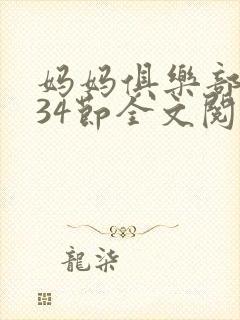 妈妈俱樂部
34節全文閱
龍柒